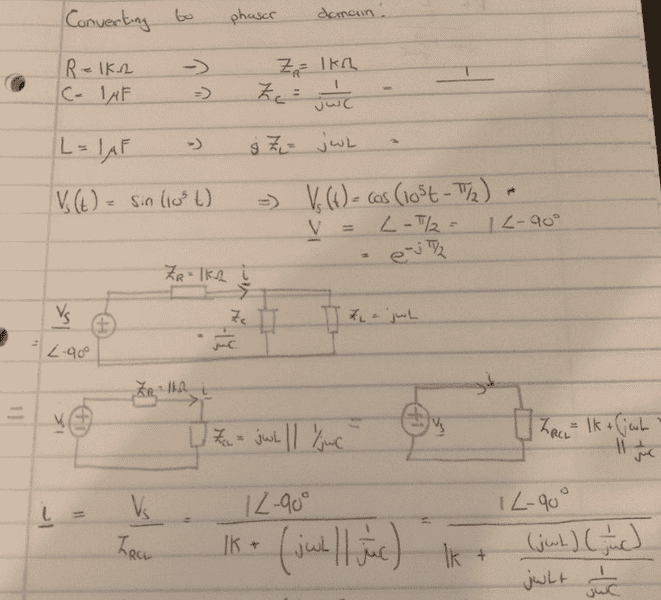 Converting to phasor domain:
R = 1KΩ -> Z_R = 1KΩ
C - 1μF => Z_C = 1/jωC - 1/
L = 1μF => Z_L = jωL =
V_s(t) = sin(10⁵t) => V_s(t) = cos(10⁵t - π/2)
V = ∠-π/2 = 1∠-90°
= e^-jπ/2
Z_R = 1KΩ i
V_s Z_C Z_L = jωL
= ∠-90° = 1/jωC
= Z_R = 1KΩ i i
V_s Z_CL = jωL || 1/jωC = V_s Z_RCL = 1K + (jωL
|| 1/jωC
i = V_s/Z_RCL = 1∠-90°/(1K + (jωL || 1/jωC)) = 1∠-90°/(1K + (jωL)(1/jωC)/(jωL + 1/jωC))